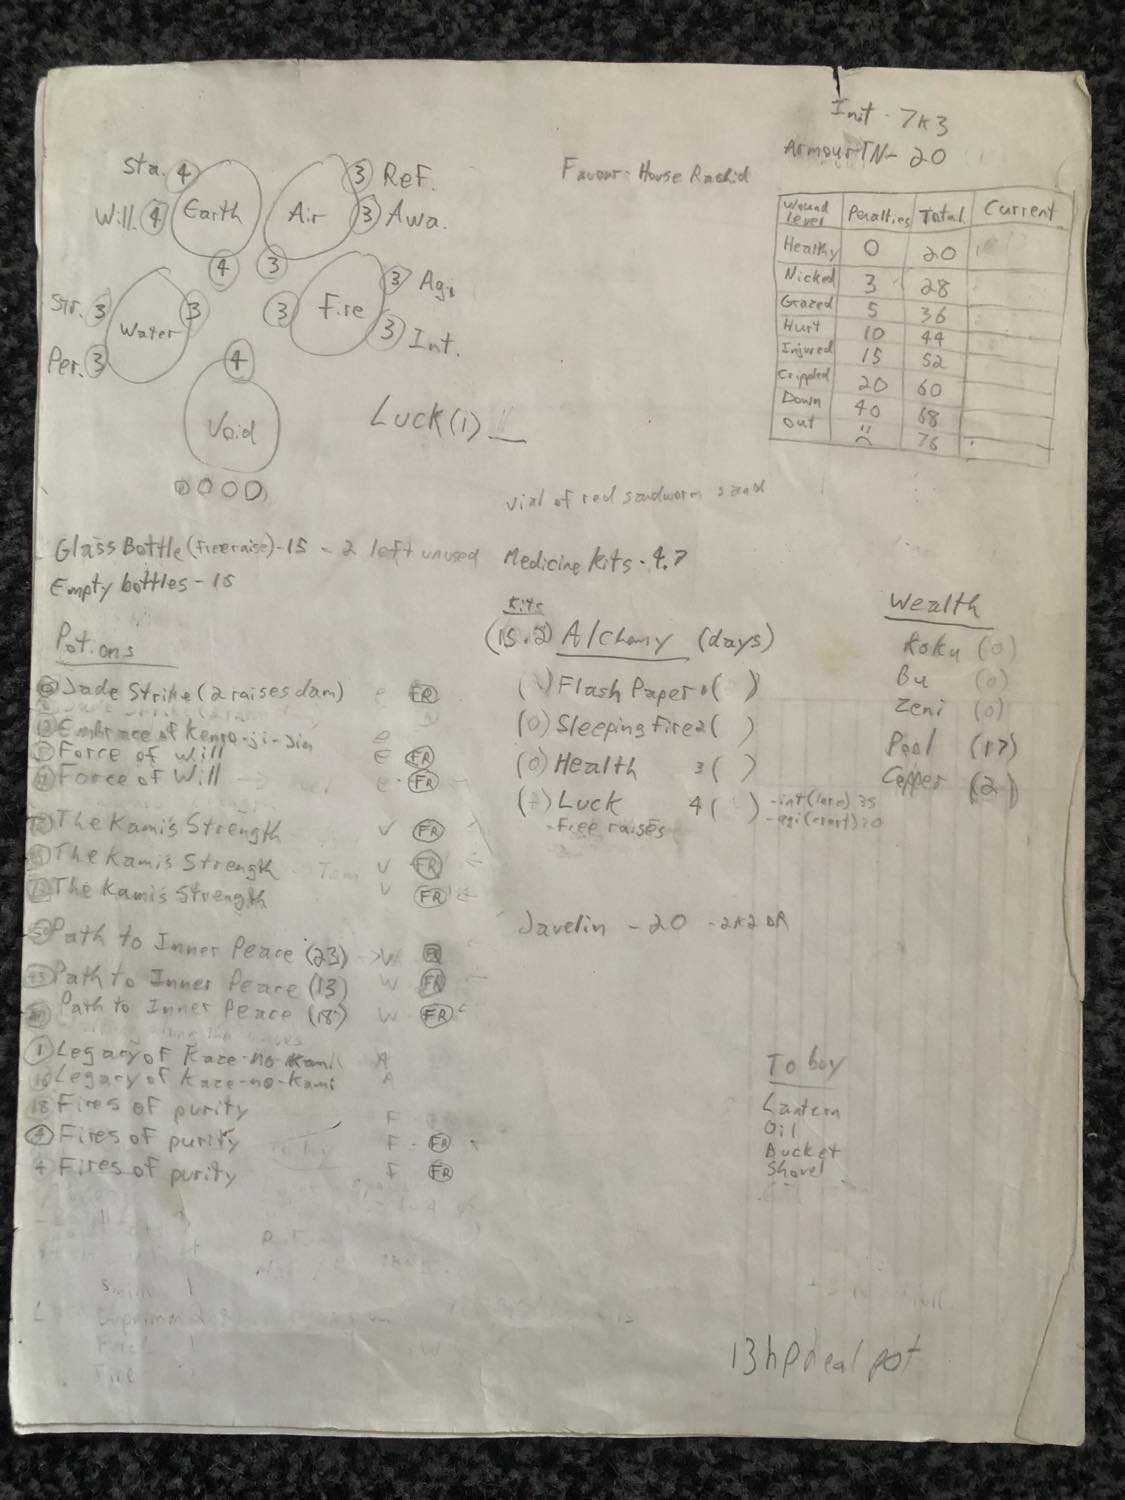 Init - 7k3
Armour TN - 20
Favour: House Rashid
Sta. 4
Will. 4
Earth
4
Air
3 Ref.
3 Awa.
3
Str. 3
Per. 3
Water
3
Fire
3
3 Agi
3 Int.
4
Void
0000
Luck (1)
Wound Level Penalties Total Current
Healthy 0 20
Nicked 3 28
Grazed 5 36
Hurt 10 44
Injured 15 52
Crippled 20 60
Down 40 68
Out 76
vial of red sandworm sand
Glass Bottle (free raise) - 15 - 2 left unused
Empty bottles - 15
Medicine Kits - 4.7
Potions
Jade Strike (2 raises dam) e FR
Embrace of Kenro-ji-jin e
Force of Will e FR
Force of Will e FR
The Kami's Strength V FR
The Kami's Strength V FR
The Kami's Strength V FR
Path to Inner Peace (23) W FR
Path to Inner Peace (13) W FR
Path to Inner Peace (18) W FR
1 Legacy of Kaze-no-Kami A
Legacy of Kaze-no-Kami A
18 Fires of purity F
Fires of purity F FR
4 Fires of purity F FR
Kits
(15.2) Alchemy (days)
Flash Paper 1 ( )
(0) Sleeping Fire 2 ( )
(0) Health 3 ( )
Luck 4 ( )
Free raises
Javelin - 20 - 2k2 DR
Wealth
Koku (0)
Bu (0)
Zeni (0)
Peal (17)
Copper (2)
To buy
Lantern
Oil
Bucket
Shovel
13 hp heal pot